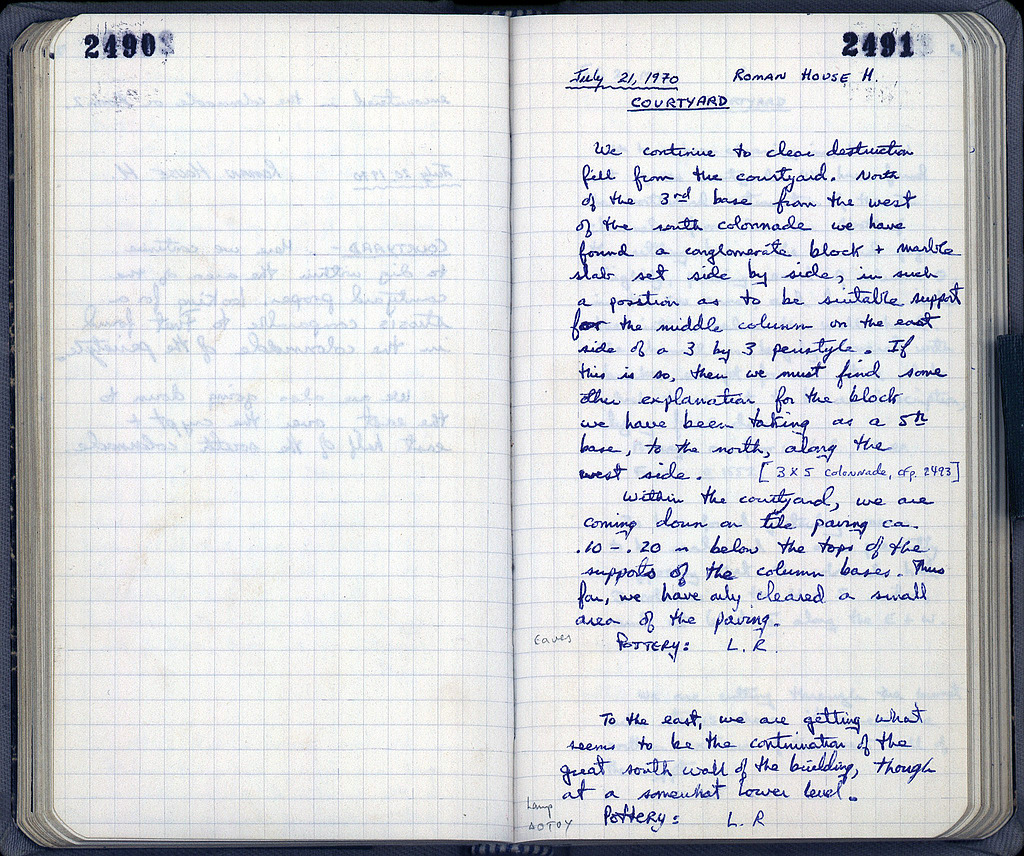 2490
2491
July 21, 1970 ROMAN HOUSE H.
COURTYARD
We continue to clear destruction
fill from the courtyard. North
of the 3rd base from the west
of the south colonnade we have
found a conglomerate block + marble
slab set side by side, in such
a position as to be suitable support
for the middle column on the east
side of a 3 by 3 peristyle. If
this is so, then we must find some
other explanation for the block
we have been taking as a 5th
base, to the north, along the
west side. [3 X 5 colonnade, cf p. 2493]
Within the courtyard, we are
coming down on tile paving ca.
.10 - .20 m below the tops of the
supports of the column bases. Thus
far, we have only cleared a small
area of the paving.
Eaves
POTTERY: L.R.
To the east, we are getting what
seems to be the continuation of the
great south wall of the building, though
at a somewhat lower level.
Lamp
ΔΟΤΟΥ
Pottery: L.R